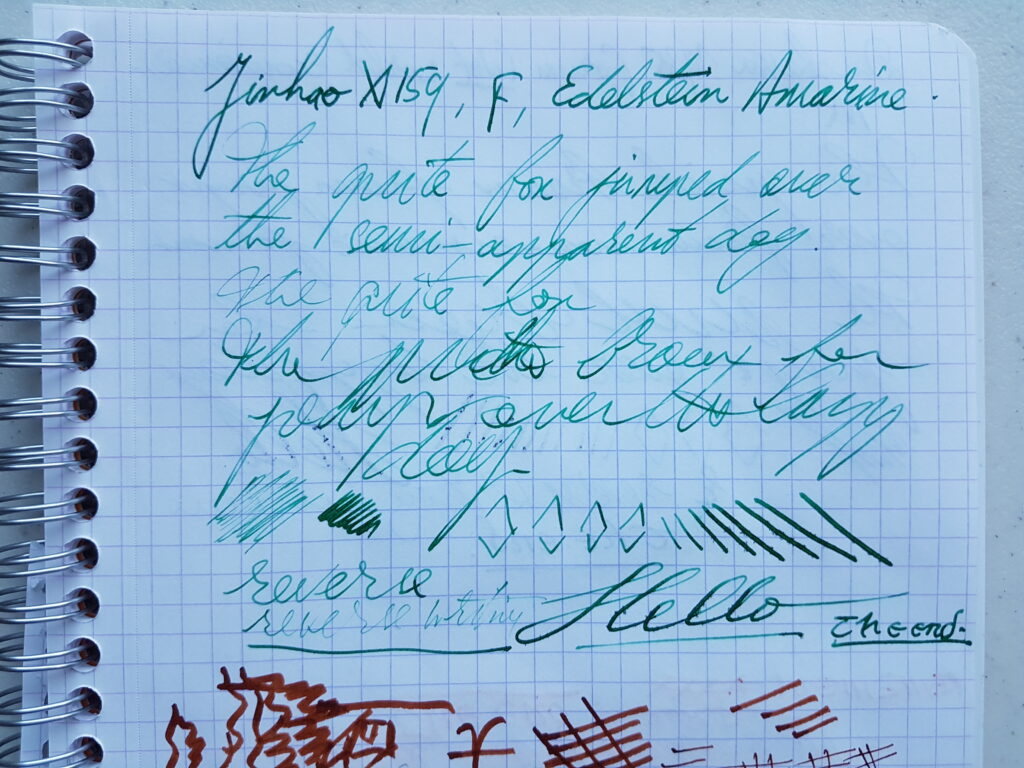 Jinhao X159, F, Edelstein Amarine.
The quite fox jumped over
the semi-apparent dog.
the quite fox
the fox
over the lazy
dog
reverse
reverse writing Hello The end.